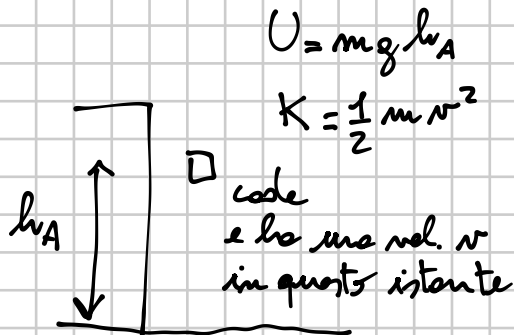 U = mghA
K = 1/2 mv²
hA
cade
e ha una vel. v
in questo istante